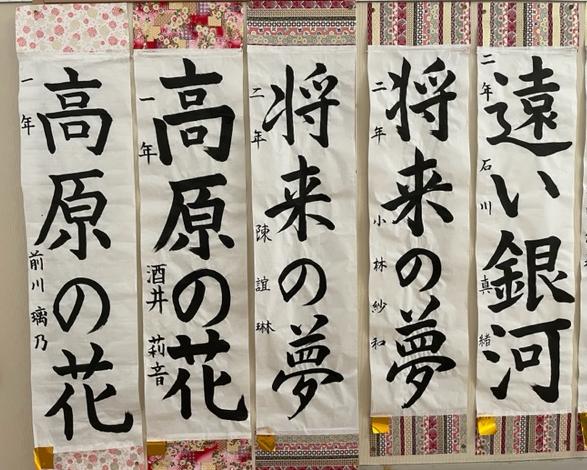 遠い銀河
二年 石川 真緒
将来の夢
二年 小林 紗和
将来の夢
二年 陳 誼琳
高原の花
一年 酒井 莉音
高原の花
一年 前川 璃乃